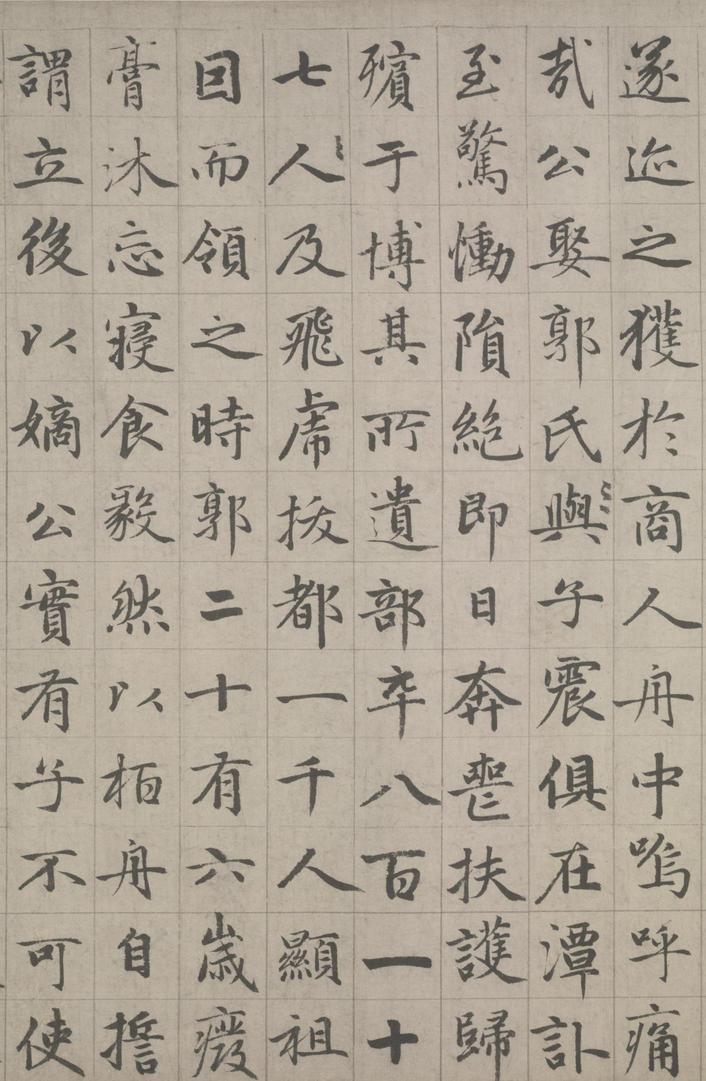 遂迹之獲於商人舟中嗚呼痛
哉公娶郭氏與子震俱在潭訃
至驚慟隕絕即日奔喪扶護歸
殯于博其所遺部卒八百一十
七人及飛虎拔都一千人顯祖
因而領之時郭二十有六歲癈
膏沐忘寢食毅然以栢舟自誓
謂立後以嫡公實有子不可使